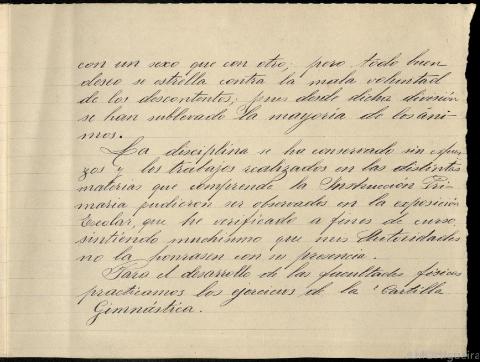 con un sexo que con otro; pero todo buen
deseo se estrella contra la mala voluntad
de los descontentos; pues desde dicha división
se han sublevado la mayoria de los áni-
mos.
La disciplina se ha conservado sin esfuer-
zos y los trabajos realizados en las distintas
materias que comprende la Instrucción Pri-
maria pudieron ser observados en la exposición
Escolar, que he verificado a fines de curso,
sintiendo muchisimo que mis Autoridades
no la honrasen con su presencia.
Para el desarrollo de las facultades fisicas
practicamos los ejercicios de la "Cartilla
Gimnástica.